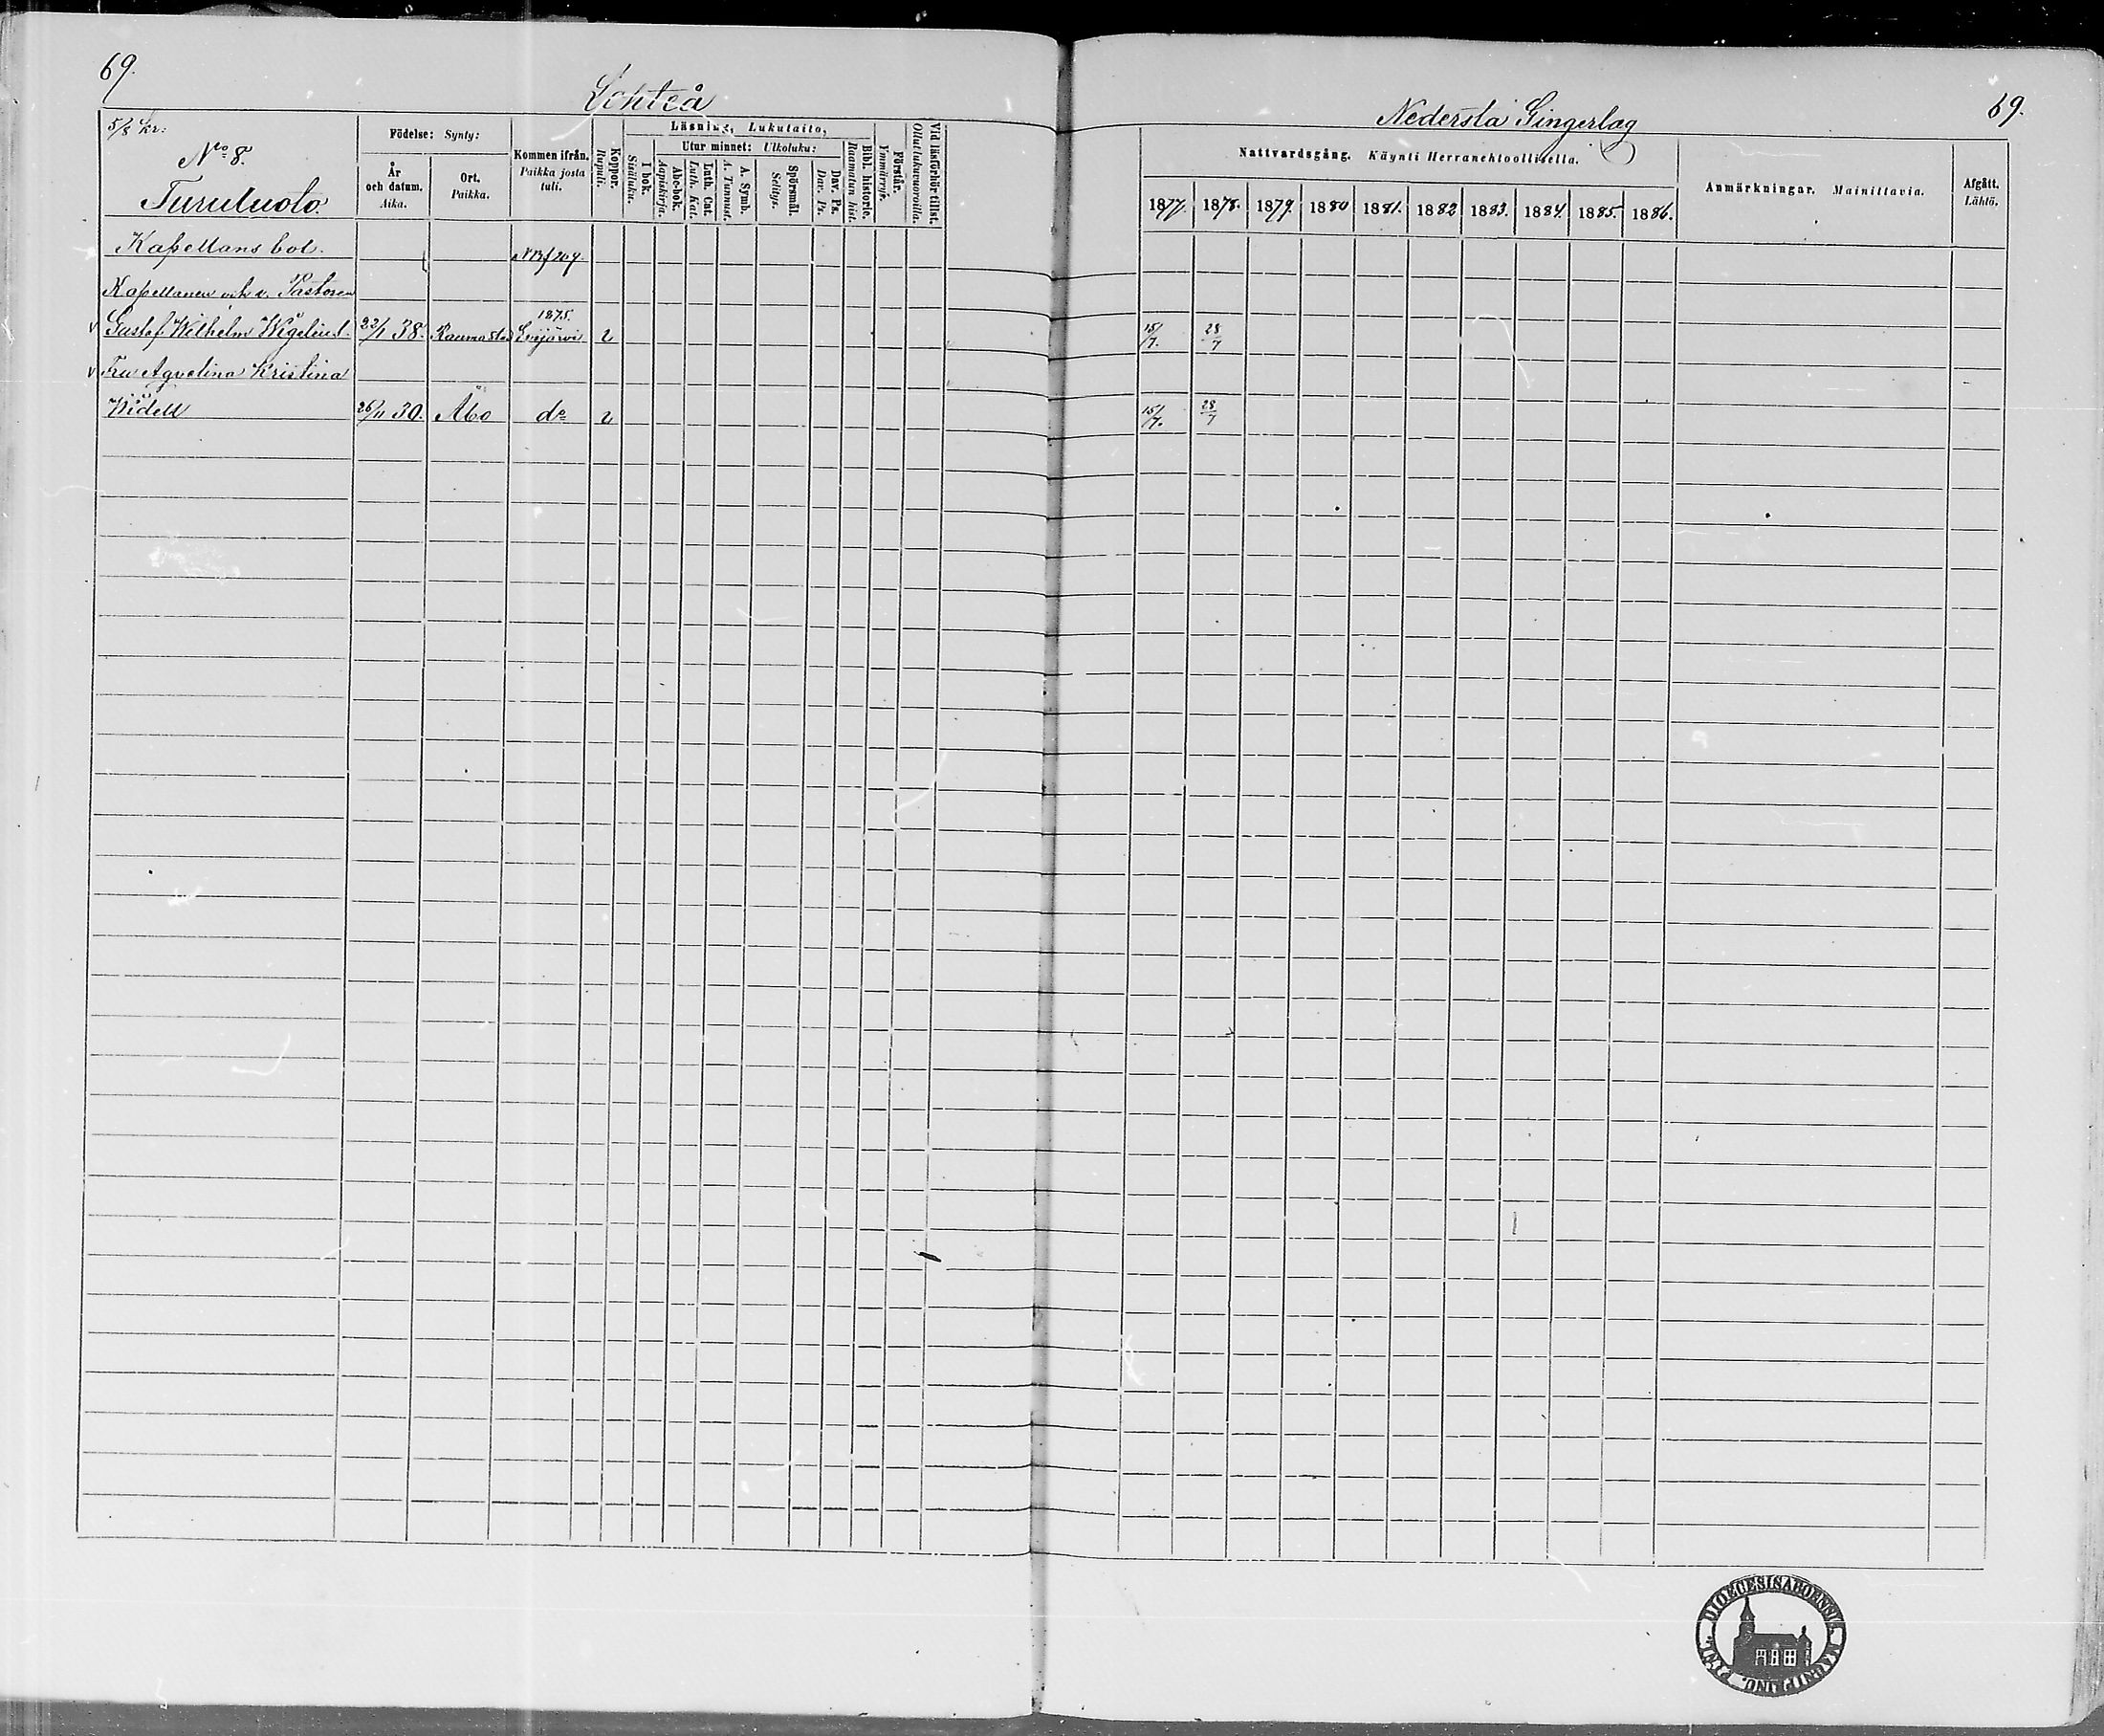 69.
Lohteå
5/8 kr:
No 8.
Turutuoto.
Födelse: Synty:
År och datum. Aika.
Ort. Paikka.
Kommen ifrån. Paikka josta tuli.
Koppor. Rupuli.
Läsning, Lukutaito,
I bok. Sisäluku.
Utur minnet: Ulkoluku:
Abc-bok. Aapiskirja.
Luth. Cat. Luth. Kat.
A. Symb. A. Tunnust.
Spörsmål. Selitys.
Dav. Ps. Dav. Ps.
Bibl. historie. Raamatun hist.
Förstår. Ymmärrys.
Vid läsförhör tillst. Ollut lukuvuoroilla.
Kapellans bol.
Kapellanen och v. Pastoren
1875.
v Gustaf Wilhelm Wigelius 22/1 38. Raumo stad Evijärvi 2
v Fru Aqvelina Kristina
Widell 26/11 30. Åbo do 2
Nedersta Gingerlag
69.
Nattvardsgång. Käynti Herranehtoollisella.
Anmärkningar. Mainittavia.
Afgått. Lähtö.
1877. 1878. 1879. 1880 1881. 1882 1883. 1884. 1885. 1886.
15/7. 28/7
15/7. 28/7